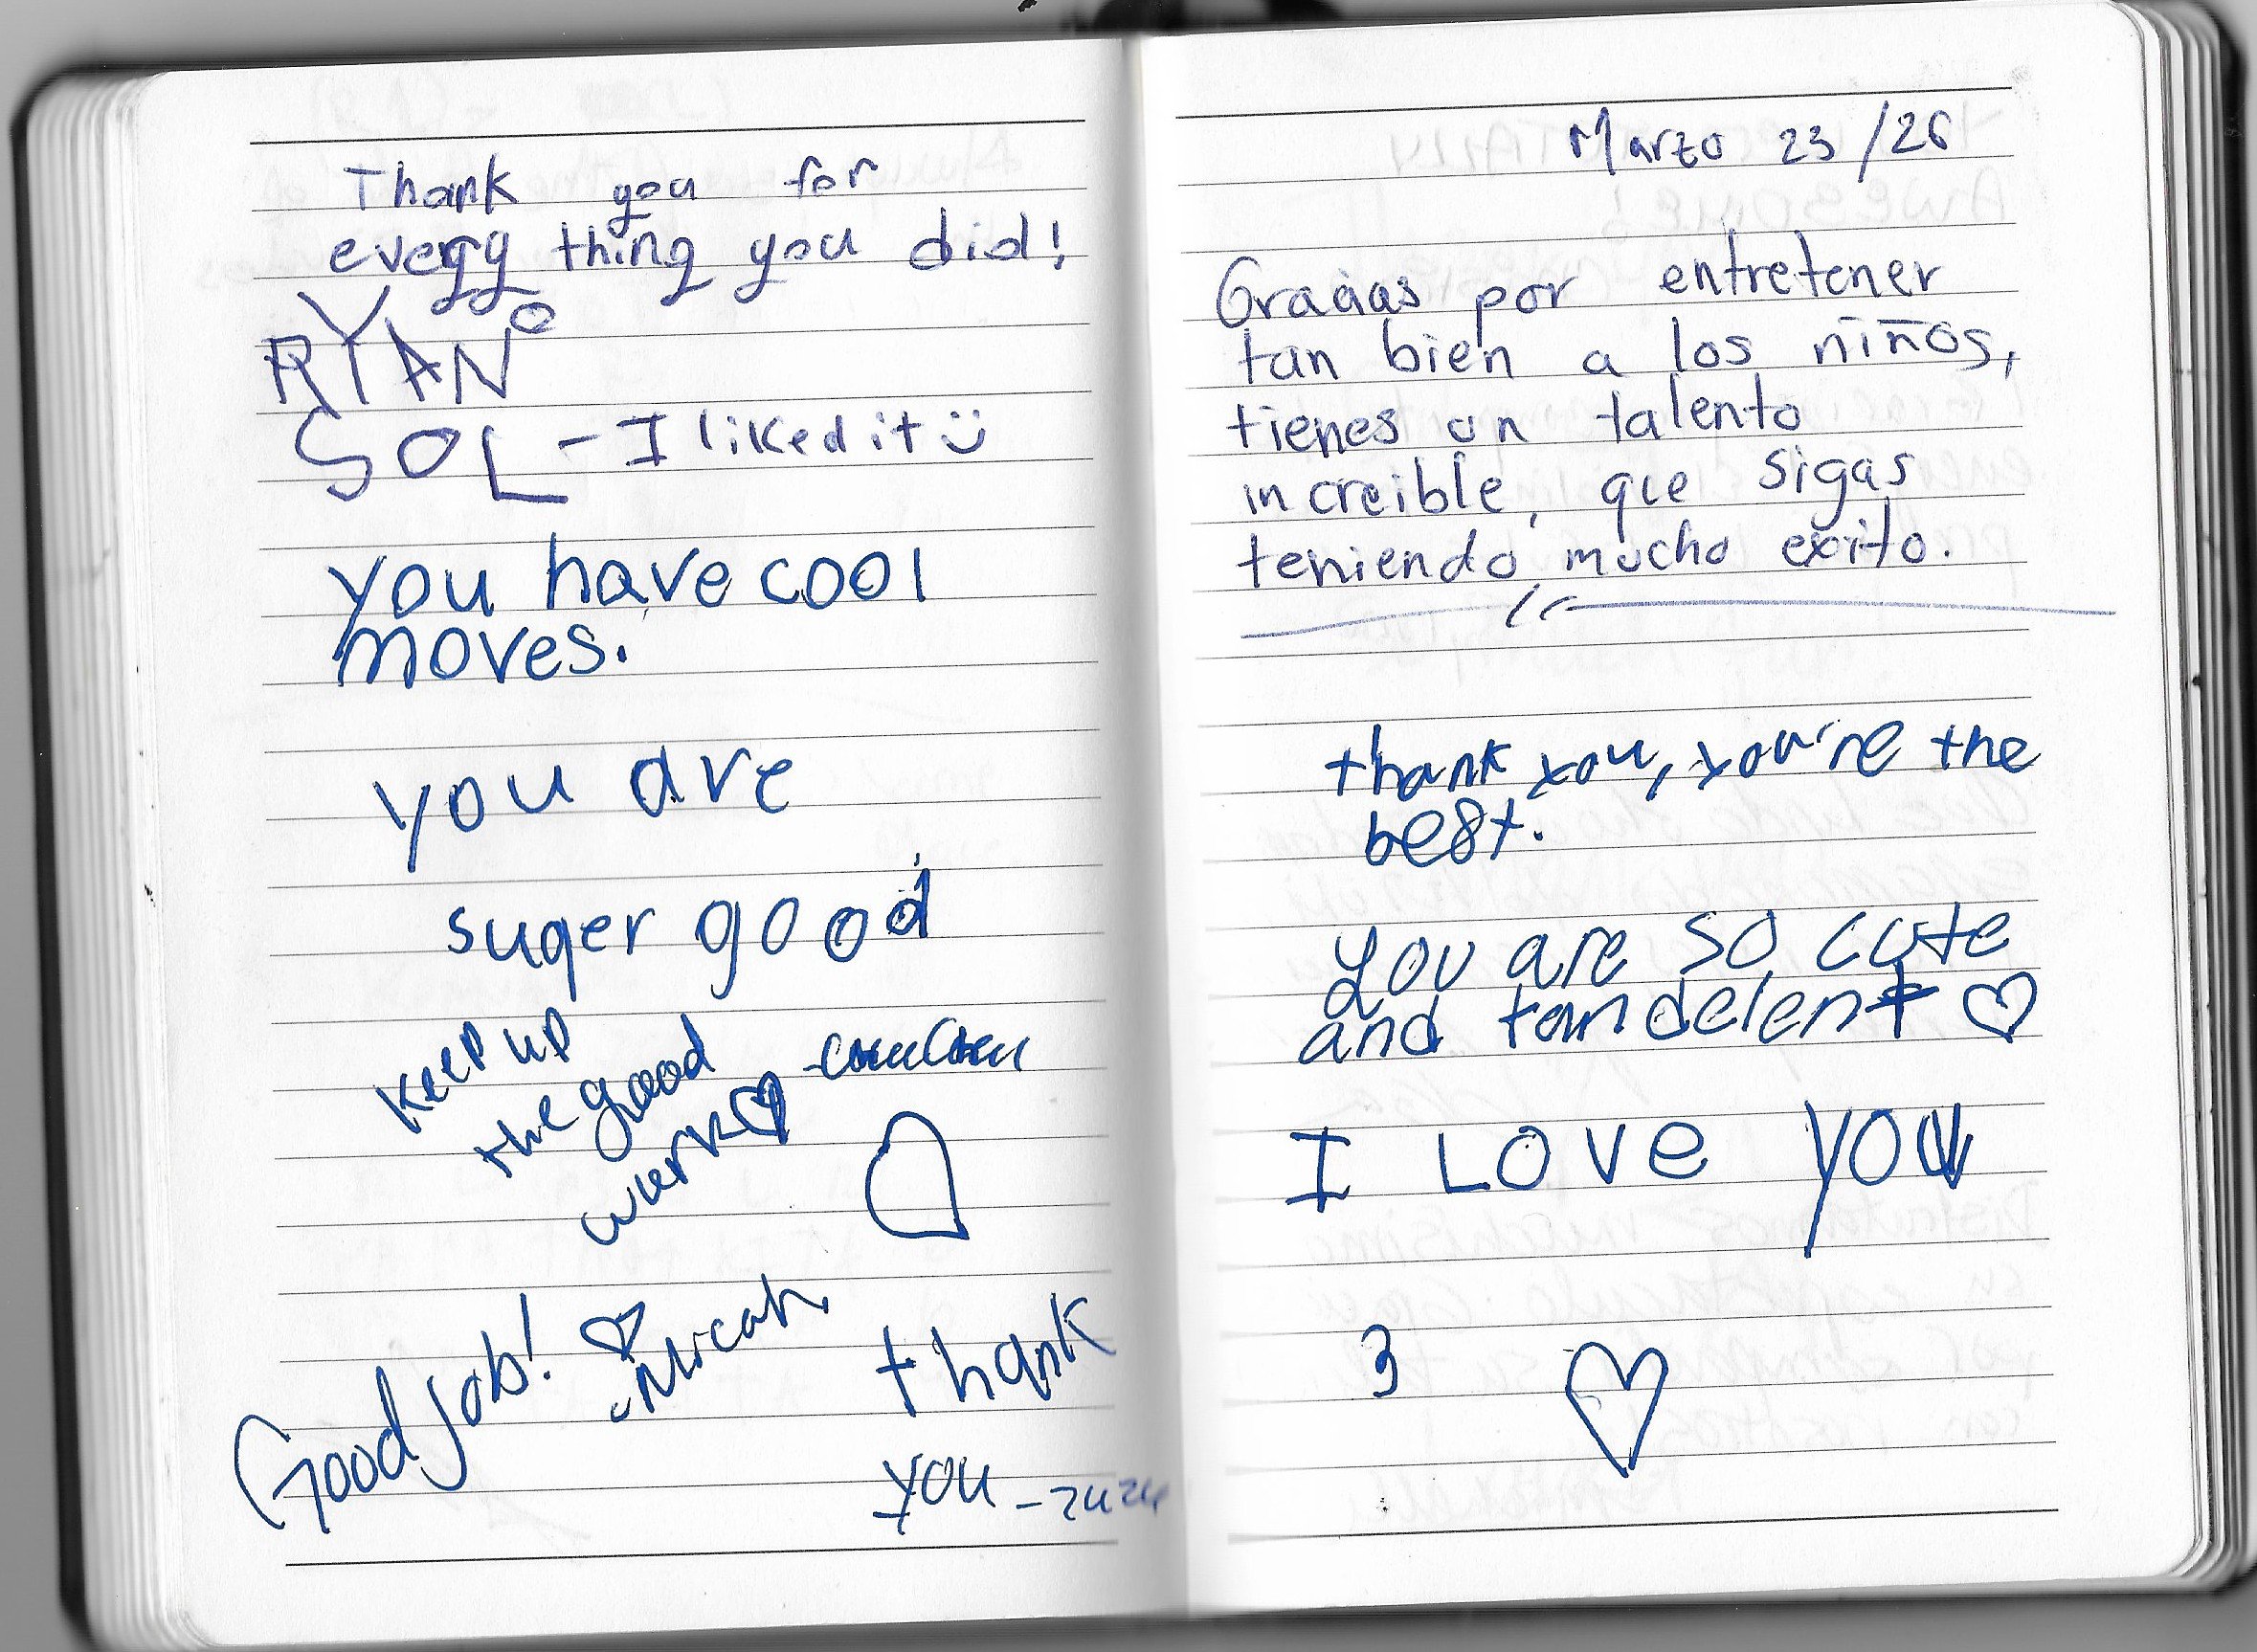 Thank you for
everyy thing you did!
RYAN
SOL - I liked it
you have cool
moves.
you are
suger good
Keep up
the good
work
Good Job!
-Micah
thank
you -
Marzo 23/26
Gracias por entretener
tan bien a los niños,
tienes un talento
increible, que sigas
teniendo mucho exito.
thank you, you're the
best.
you are so cute
and tandelent
I Love you
3